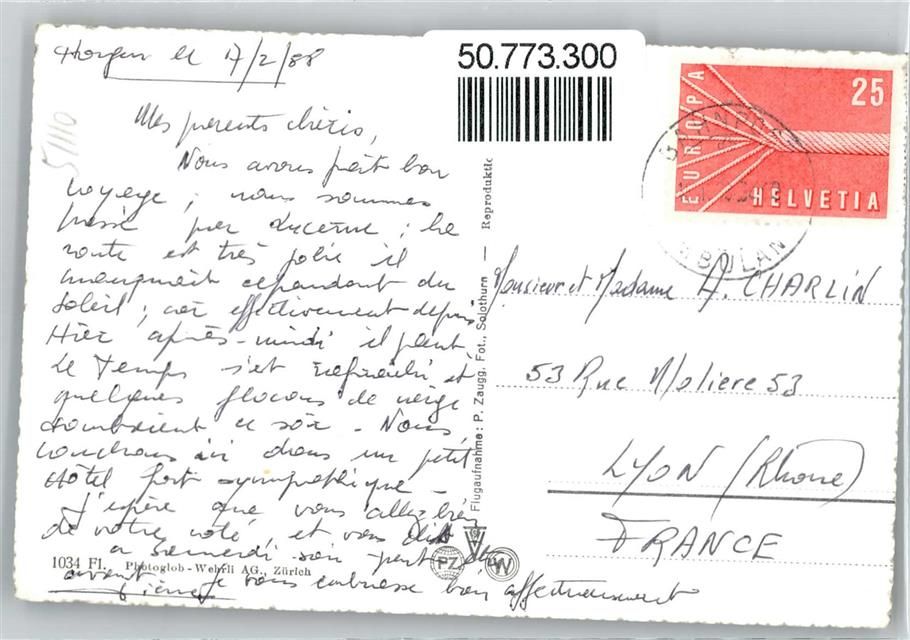 Horgen le 17/2/58
50.773.300
Mes parents chéris,
Nous avons fait bon
voyage ; nous sommes
passé par Lucerne ; la
route est très jolie il
manquait cependant du
soleil ; car effectivement depuis
Hier après-midi il pleut
Le temps s'est refraichi et
quelques flocons de neige
tombaient ce soir - Nous
couchons ici dans un petit
Hôtel fort sympathique -
J'espère que vous allez bien
de votre côté, et vous dit
a samedi soir peut être
avant. Je vous embrasse bien affectueusement
Pierre
51110
EUROPA
25
HELVETIA
Monsieur et Madame A. CHARLIN
53 Rue Molière 53
LYON (Rhône)
FRANCE
Flugaufnahme: P. Zaugg, Fot., Solothurn — Reproduktio
1034 Fl. Photoglob-Wehrli AG., Zürich
PZ
W